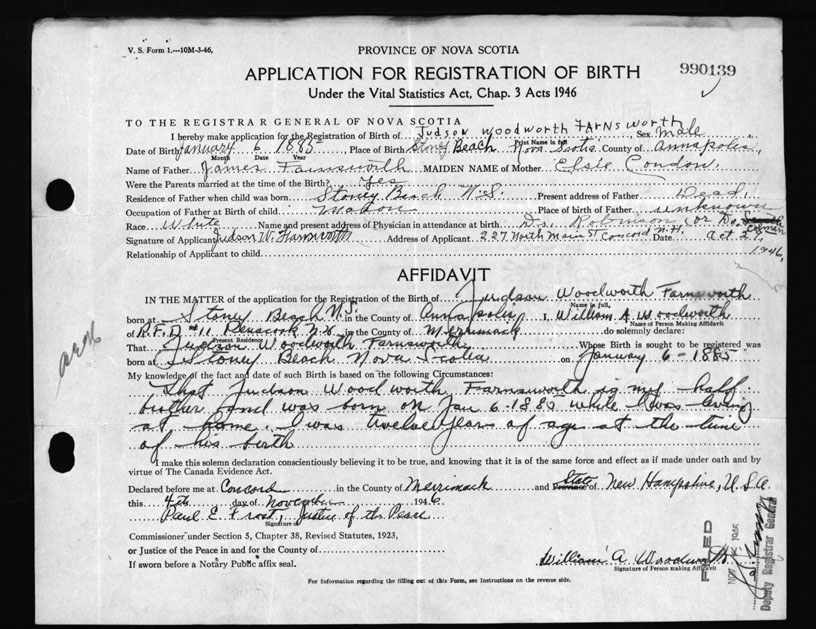 V. S. Form 1.—10M-3-46,
PROVINCE OF NOVA SCOTIA
APPLICATION FOR REGISTRATION OF BIRTH
990139
Under the Vital Statistics Act, Chap. 3 Acts 1946
TO THE REGISTRAR GENERAL OF NOVA SCOTIA
I hereby make application for the Registration of Birth of Judson Woodworth Farnsworth Sex Male
Print Name in full
Date of Birth January 6 1885 Place of Birth Stoney Beach Nova Scotia County of Annapolis
Month Date Year
Name of Father James Farnsworth MAIDEN NAME of Mother Elsie Condon
Were the Parents married at the time of the Birth? Yes
Residence of Father when child was born Stoney Beach N.S. Present address of Father Dead
Occupation of Father at Birth of child Mason Place of birth of Father unknown
Race White Name and present address of Physician in attendance at birth Dr. Robinson or Dr.
Signature of Applicant Judson W. Farnsworth Address of Applicant 227 North Main St Concord N.H. Date Oct 21, 1946,
Relationship of Applicant to child
AFFIDAVIT
IN THE MATTER of the application for the Registration of the Birth of Judson Woodworth Farnsworth
Name in full,
born at Stoney Beach N.S. in the County of Annapolis I, William A Woodworth
Name of Person Making Affidavit
of R.F.D #11 Penacook N.H. in the County of Merrimack do solemnly declare:
Present Residence
That Judson Woodworth Farnsworth Whose Birth is sought to be registered was
born at Stoney Beach Nova Scotia on January 6-1885
My knowledge of the fact and date of such Birth is based on the following Circumstances:
That Judson Woodworth Farnsworth is my half
brother and was born on Jan 6-1885 while I was living
at home. I was twelve years of age at the time
of his birth
I make this solemn declaration conscientiously believing it to be true, and knowing that it is of the same force and effect as if made under oath and by
virtue of The Canada Evidence Act.
Declared before me at Concord in the County of Merrimack and State Province of New Hampshire, U.S.A.
this 4th day of November 1946
Paul E. Frost, Justice of the Peace
Signature of
Commissioner under Section 5, Chapter 38, Revised Statutes, 1923,
or Justice of the Peace in and for the County of
If sworn before a Notary Public affix seal.
William A Woodworth
Signature of Person making Affidavit
For Information regarding the filling out of this Form, see Instructions on the reverse side.
FILED
Deputy Registrar General